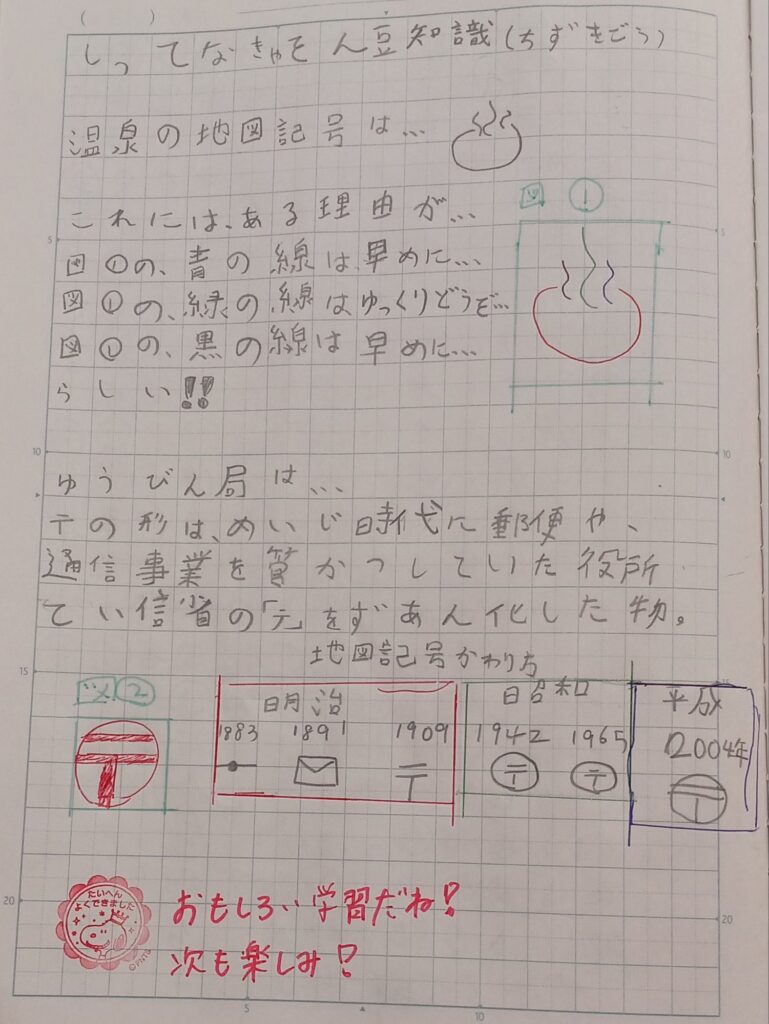 ( )
しってなきゃそん豆知識(ちずきごう)
温泉の地図記号は…
これには、ある理由が…
図①の、青の線は早めに…
図①の、緑の線はゆっくりどうぞ…
図①の、黒の線は早めに…
らしい!!
図 ①
ゆうびん局は…
〒の形は、めいじ時代に郵便や、
通信事業を管かつしていた役所
てい信省の「テ」をずあん化した物。
地図記号かわり方
図②
明治
1883 1891 1909
〒
昭和
1942 1965
〒 〒
平成
2004年
〒
たいへん
よくできました
おもしろい学習だね!
次も楽しみ!
5
10
15
20
5
10
15
20
5
10